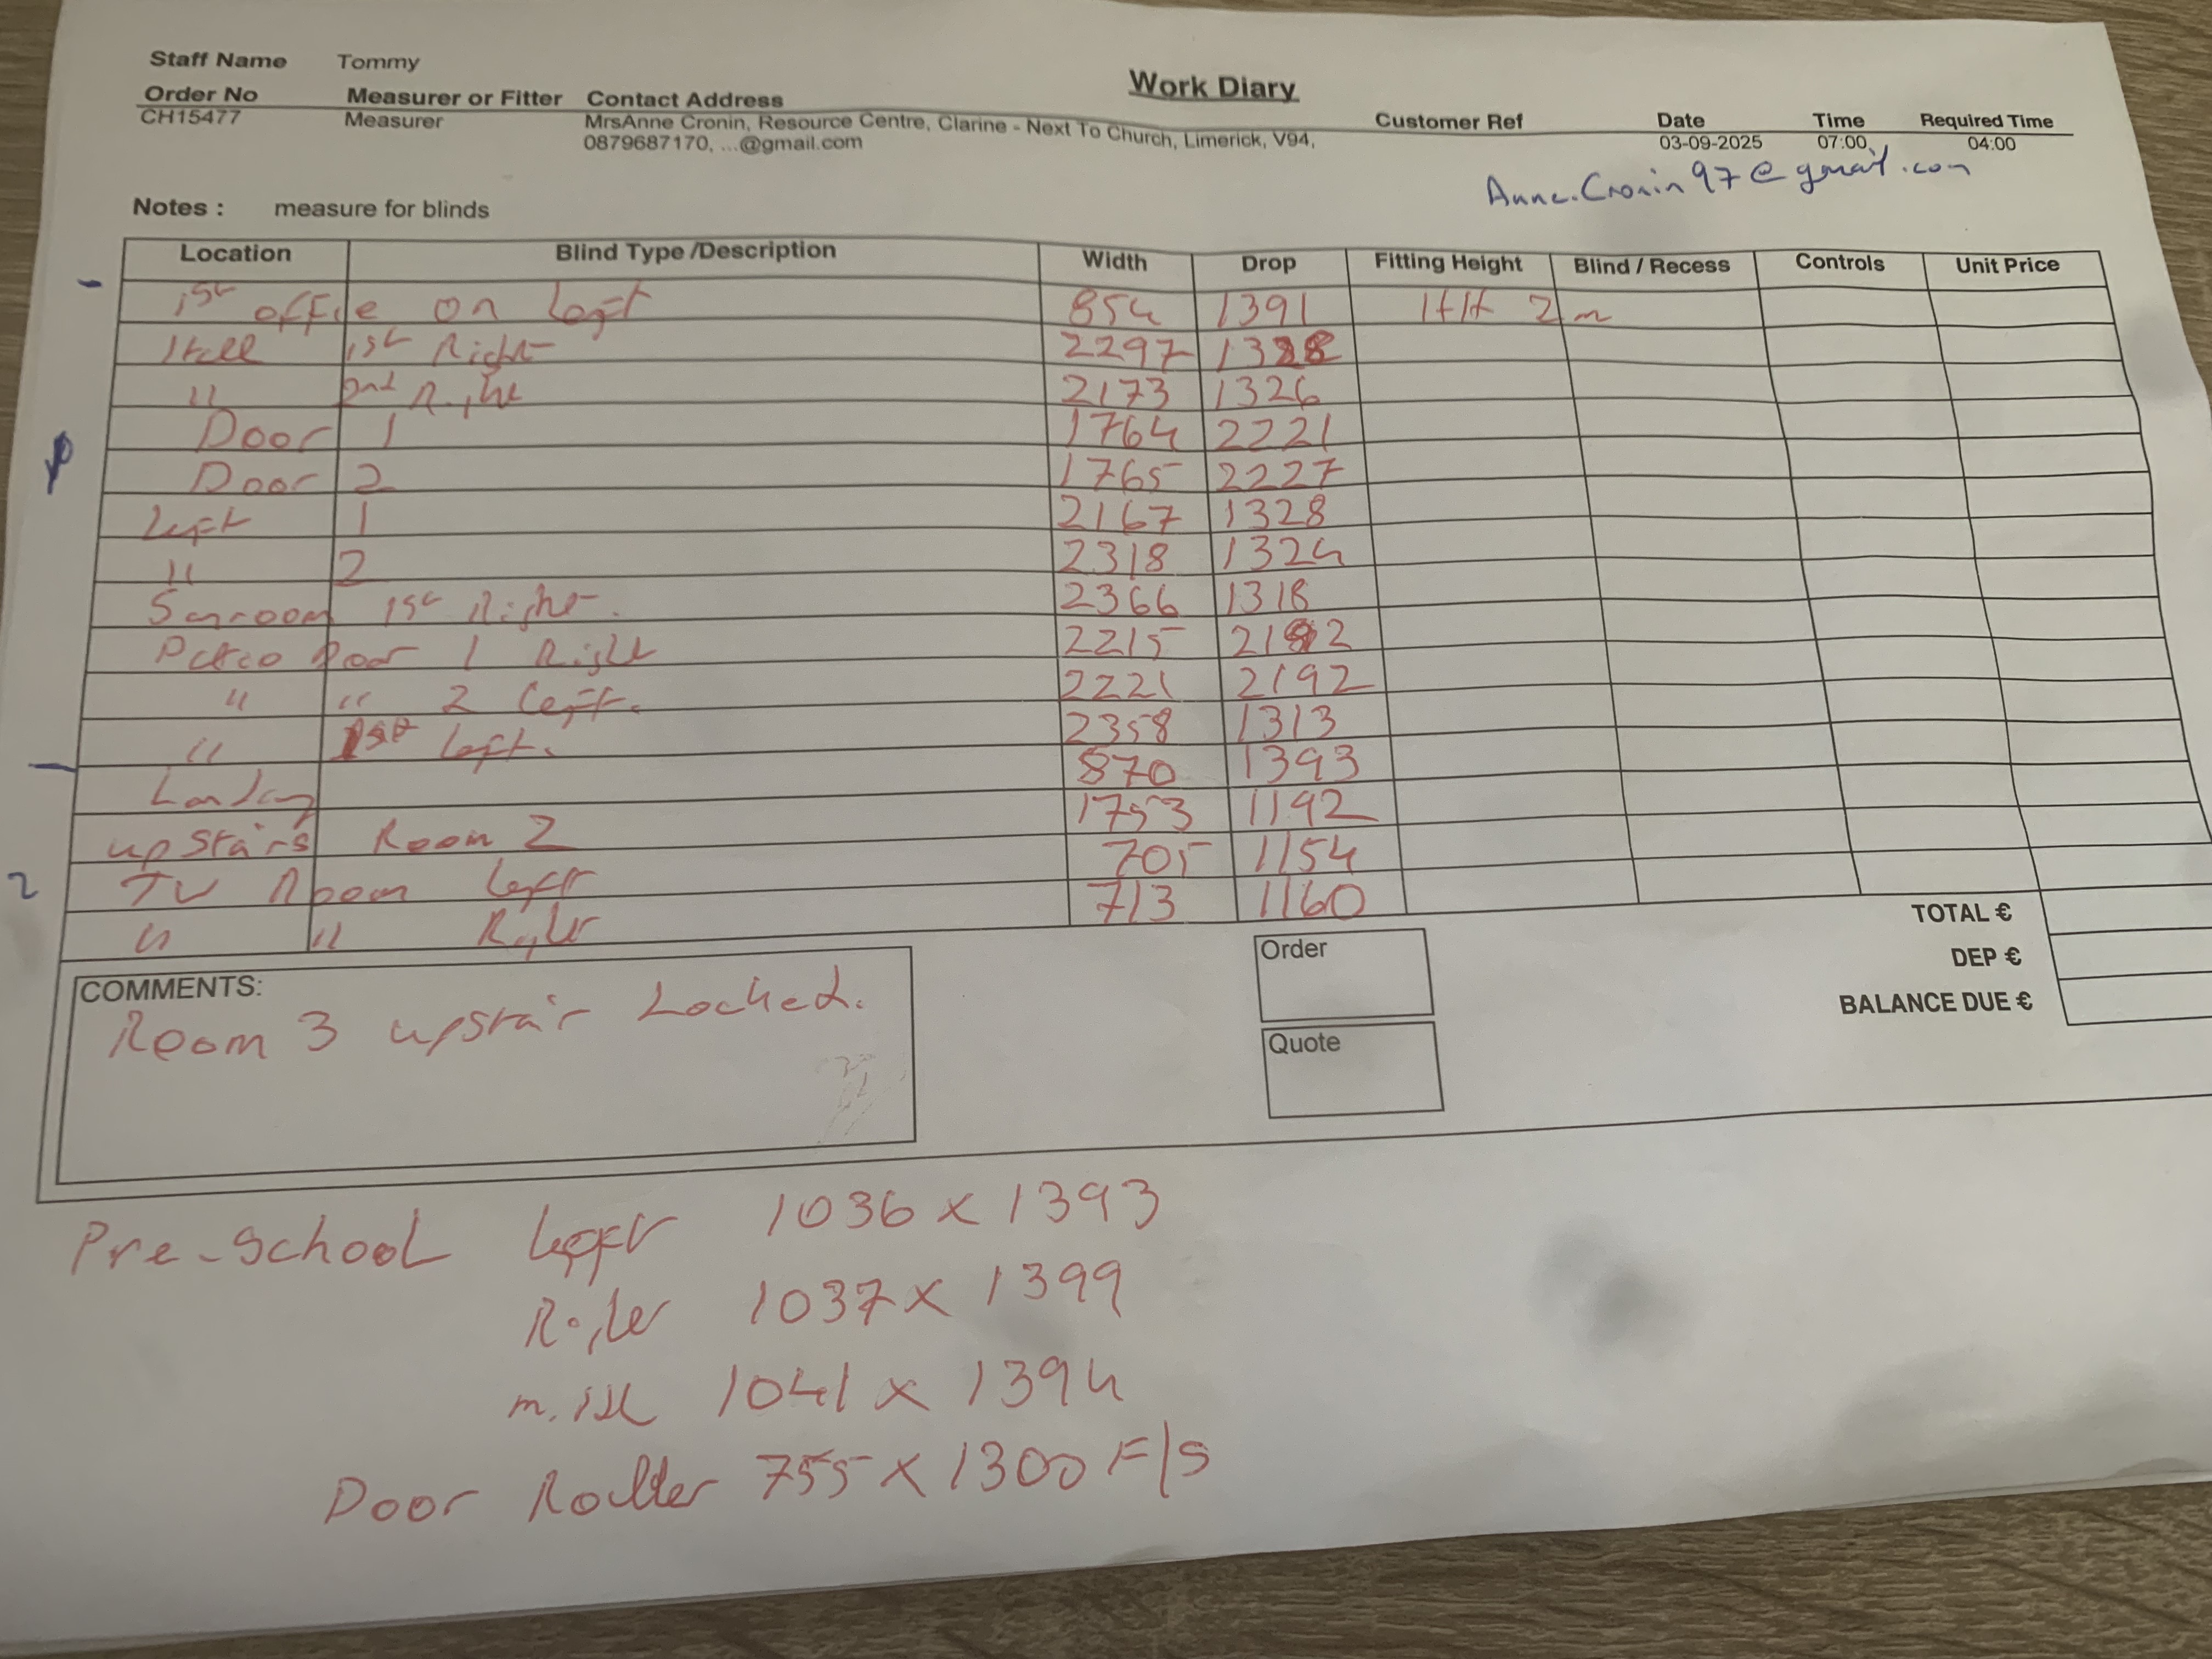 Staff Name Tommy
Work Diary
Order No Measurer or Fitter Contact Address Customer Ref Date Time Required Time
CH15477 Measurer MrsAnne Cronin, Resource Centre, Clarine - Next To Church, Limerick, V94, 03-09-2025 07:00 04:00
0879687170, ...@gmail.com
Anne.Cronin97@gmail.com
Notes : measure for blinds
Location Blind Type /Description Width Drop Fitting Height Blind / Recess Controls Unit Price
1st office on left 854 1391 2m
Hall 1st Right 2297 1328
" 2nd Right 2173 1326
Door 1 1764 2221
Door 2 1765 2227
Left 1 2167 1328
" 2 2318 1324
Sunroom 1st Right. 2366 1318
Patio Door 1 Right 2215 2192
" " 2 Left. 2221 2192
" 1st Left. 2358 1313
Landing 870 1393
upstairs Room 2 1753 1192
2 TV Room Left 705 1154
" " Right 713 1160
TOTAL €
DEP €
BALANCE DUE €
COMMENTS:
Room 3 upstair Locked.
Order
Quote
Pre-School Left 1036 x 1393
Right 1037 x 1399
1041 x 1394
Door Roller 755 x 1300 F/S